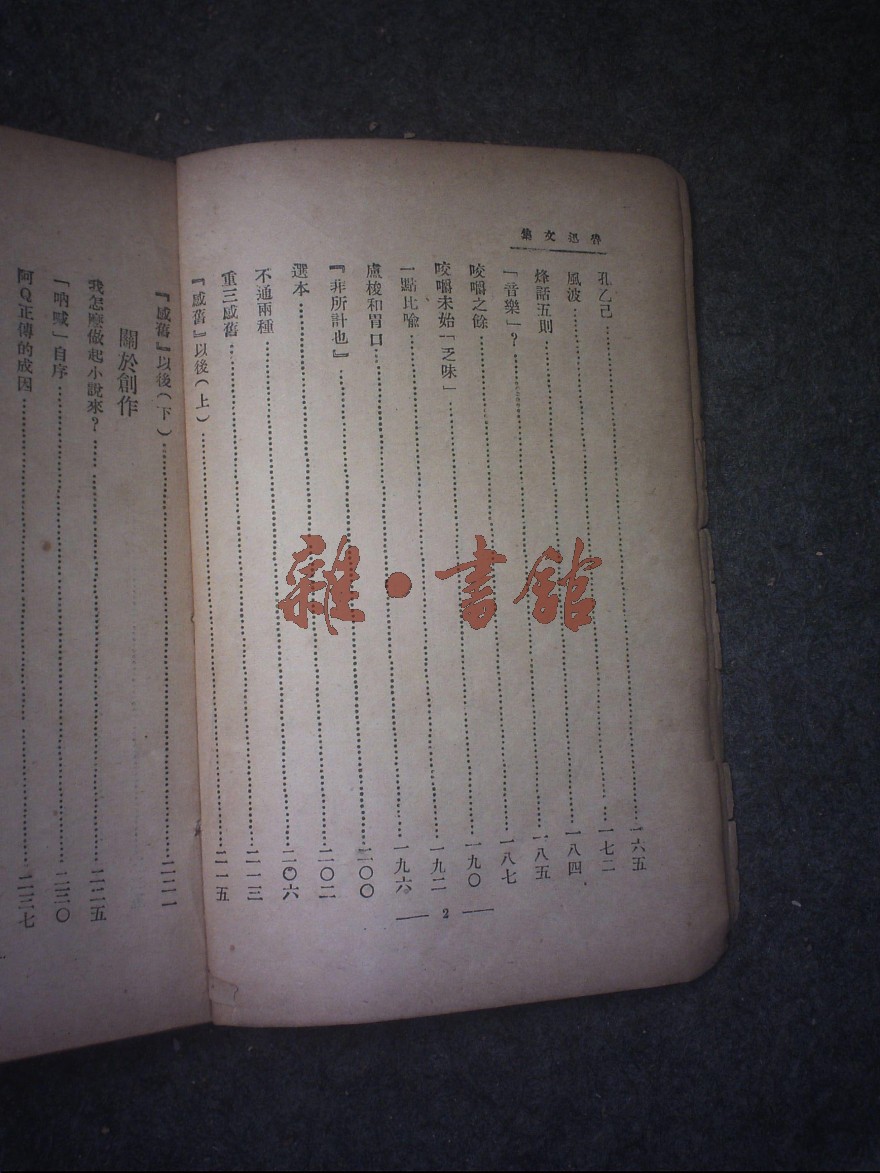 魯迅文集
孔乙己……一六五
風波……一七二
烽話五則……一八四
「音樂」?……一八五
咬嚼之餘……一八七
咬嚼未始「乏味」……一九〇
一點比喻……一九二
盧梭和胃口……一九六
『非所計也』……二〇〇
選本……二〇二
不通兩種……二〇六
重三感舊……二一三
『感舊』以後(上)……二一五
— 2 —
『感舊』以後(下)……二二一
關於創作
我怎麼做起小說來?……二二五
「吶喊」自序……二三〇
阿Q正傳的成因……二三七
雜·書館